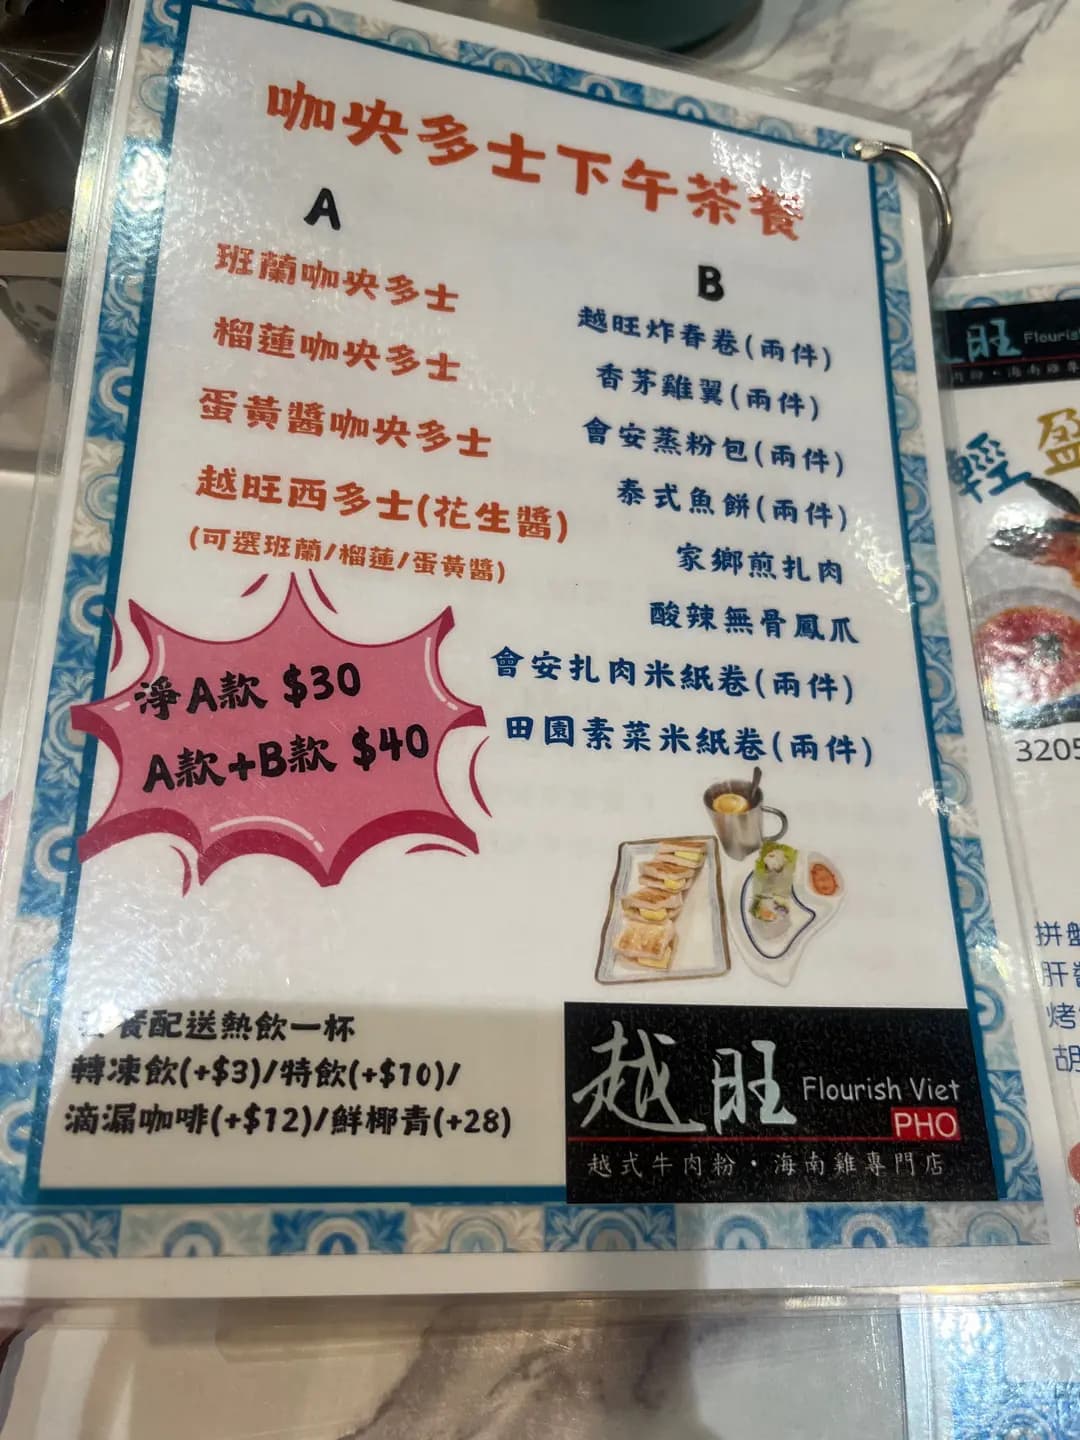 咖央多士下午茶餐
A
班蘭咖央多士
榴蓮咖央多士
蛋黃醬咖央多士
越旺西多士(花生醬)
(可選班蘭/榴蓮/蛋黃醬)
淨A款 $30
A款+B款 $40
B
越旺炸春卷(兩件)
香茅雞翼(兩件)
會安蒸粉包(兩件)
泰式魚餅(兩件)
家鄉煎扎肉
酸辣無骨鳳爪
會安扎肉米紙卷(兩件)
田園素菜米紙卷(兩件)
餐配送熱飲一杯
轉凍飲(+$3)/特飲(+$10)/
滴漏咖啡(+$12)/鮮椰青(+28)
越旺 Flourish Viet
PHO
越式牛肉粉・海南雞專門店
旺 Flouris
肉粉・海南雞專
輕盈
3205
拼盤
肝醬
烤
胡